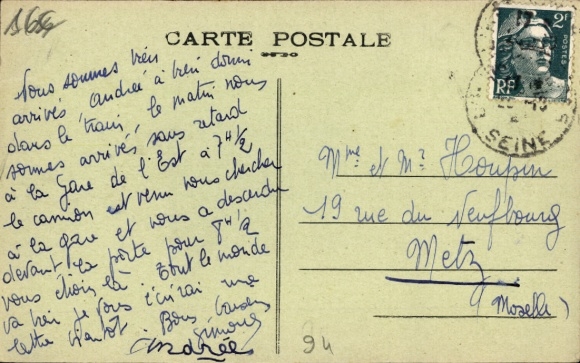 1664
CARTE POSTALE
Nous sommes bien
arrivés, Andrée à bien dormi
dans le train, le matin nous
sommes arrivés sans retard
à la Gare de l'Est à 7 H 1/2
le camion est venu nous chercher
à la gare et nous a descendu
devant la porte pour 8 H 1/2
vous choisla tout le monde
va bien je vous écrirai une
lettre bientôt. Bons baisers
Simone
Andrée
2F
POSTES
RF
17
SEINE
Mme et Mr Houpin
19 rue du Neufbourg
Metz
(Moselle)
94